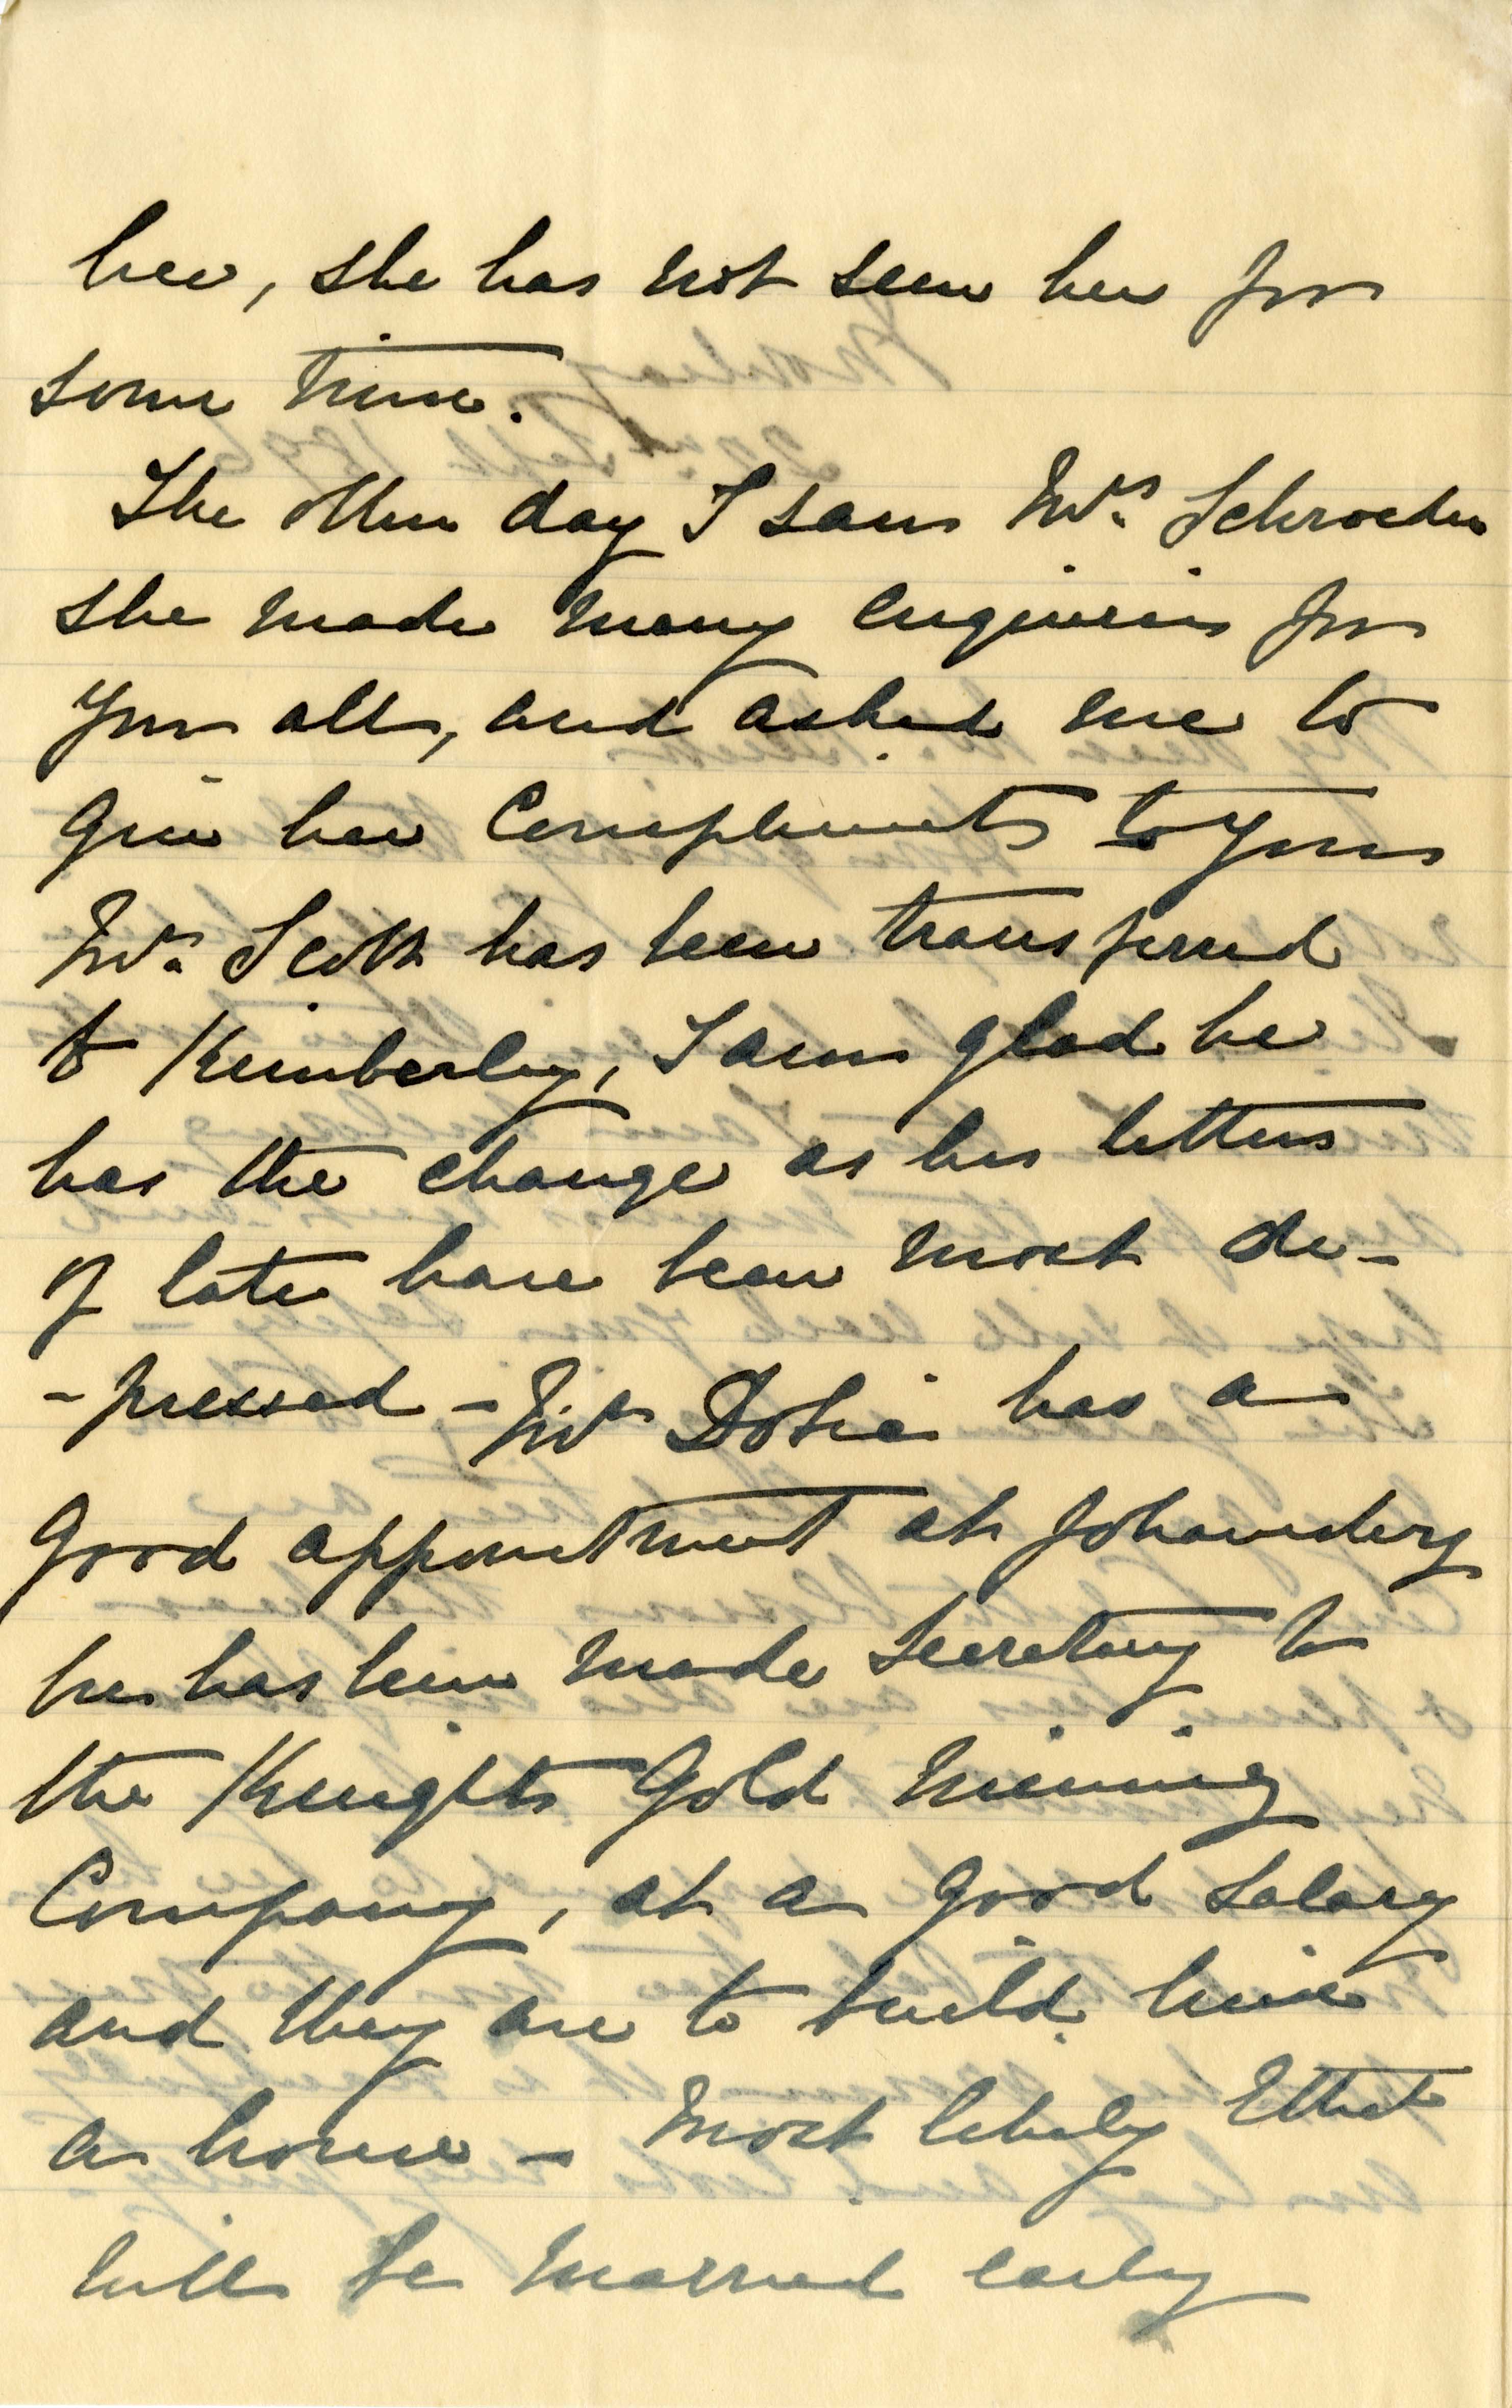 her, she has not seen her for
some time.
The other day I saw Mrs. Schroeder
she made many enquiries for
you all, and asked me to
give her Compliments to you
Mr. Scott has been transferred
to Kimberley, I am glad he
has the change as his letters
of late have been most de-
-pressed - Mr Dobie has a
good appointment at Johannesburg
he has been made Secretary to
the Knights Gold Mining
Company, at a good salary
and they are to build him
a house - Most likely Ethel
will be married early